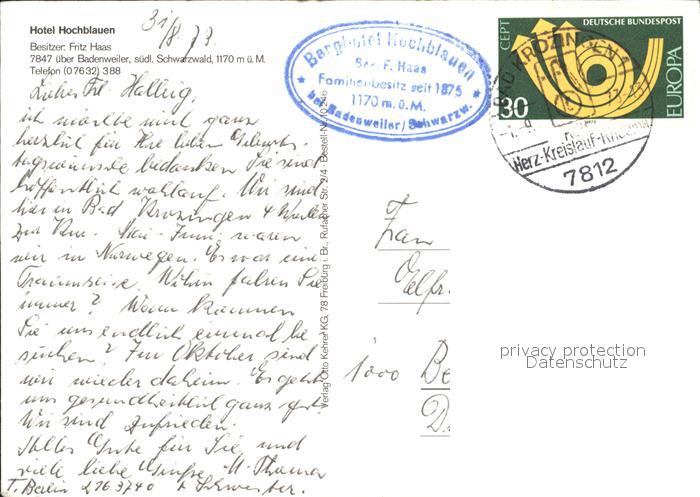 Hotel Hochblauen
Besitzer: Fritz Haas
7847 über Badenweiler, südl. Schwarzwald, 1170 m ü. M.
Telefon (07632) 388
31/8.73.
Berghotel Hochblauen
Bes. F. Haas
Familienbesitz seit 1875
1170 m.ü.M.
bei Badenweiler/Schwarzw.
DEUTSCHE BUNDESPOST
CEPT
EUROPA
30
BAD KROZINGEN 1
Herz-Kreislauf-
7812
Liebes Frl. Hallwig,
ich möchte mich ganz
herzlich für Ihre lieben Geburts-
tagswünsche bedanken. Sie sind
hoffentlich wohlauf. Wir sind
hier in Bad Krozingen 4 Wochen
zur Kur. Mai-Juni waren
wir in Norwegen. Es war eine
Traumreise. Wohin fahren Sie
immer? Wann kommen
Sie uns endlich einmal be
suchen? Im Oktober sind
wir wieder daheim. Es geht
uns gesundheitlich ganz gut.
Wir sind zufrieden.
Alles Gute für Sie und
viele liebe Grüße M. Thoma
T. Berlin 2163740 + Schwester.
Verlag Otto Kehrer KG, 78 Freiburg i. Br., Rufacher Str. 3/4 - Bestell-Nr.
Frau
Elfr.
1000 Be
D
privacy protection
Datenschutz